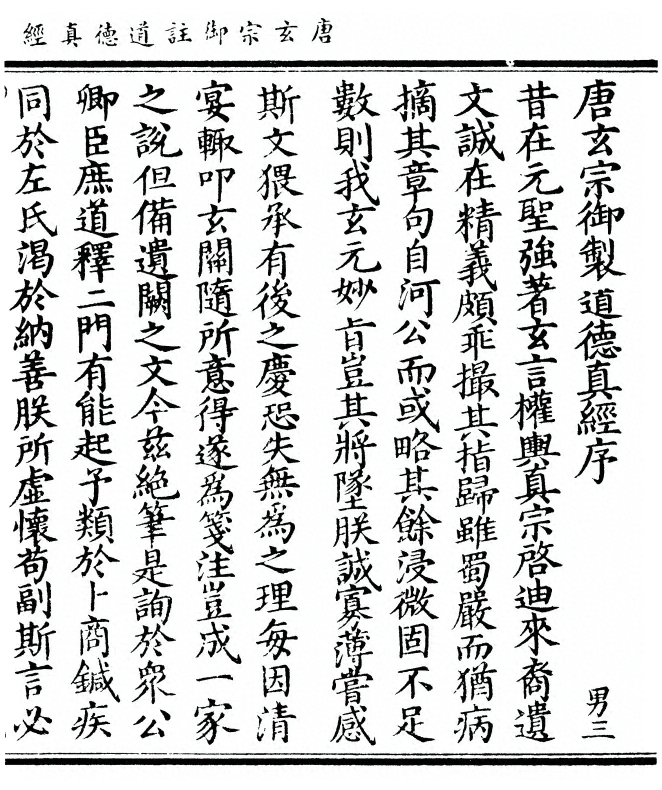 唐玄宗御註道德真經
唐玄宗御製道德真經序
男三
昔在元聖強著玄言權輿真宗啓迪來裔遺
文誠在精義頗乖撮其指歸雖蜀嚴而猶病
摘其章句自河公而或略其餘浸微固不足
數則我玄元妙旨豈其將墜朕誠寡薄嘗感
斯文猥承有後之慶恐失無爲之理每因清
宴輒叩玄關隨所意得遂爲箋注豈成一家
之說但備遺闕之文今茲絕筆是詢於衆公
卿臣庶道釋二門有能起予類於卜商鍼疾
同於左氏渴於納善朕所虛懷苟副斯言必